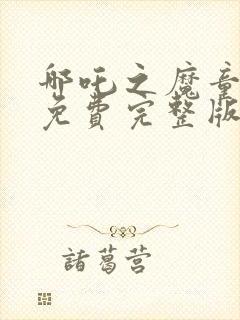 哪吒之魔童
免費完整版
諸葛营